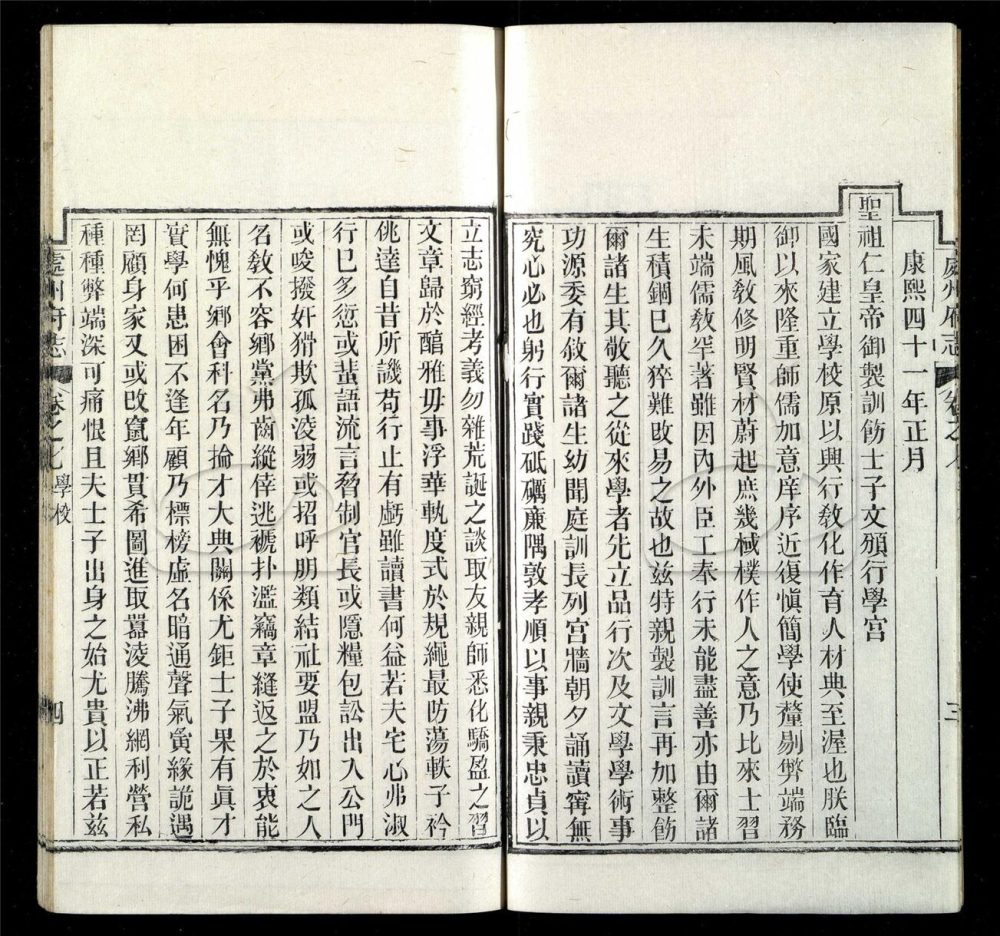 處州府志 卷之七 三
康熙四十一年正月
聖祖仁皇帝御製訓飭士子文頒行學宮
國家建立學校原以興行敎化作育人材典至渥也朕臨
御以來隆重師儒加意庠序近復愼簡學使釐剔弊端務
期風敎修明賢材蔚起庶幾棫樸作人之意乃比來士習
未端儒敎罕著雖因內外臣工奉行未能盡善亦由爾諸
生積錮已久猝難改易之故也兹特親製訓言再加整飭
爾諸生其敬聽之從來學者先立品行次及文學學術事
功源委有敘爾諸生幼聞庭訓長列宮牆朝夕誦讀寧無
究心必也躬行實踐砥礪廉隅敦孝順以事親秉忠貞以
立志窮經考義勿雜荒誕之談取友親師悉化驕盈之習
文章歸於醇雅毋事浮華軌度式於規繩最防蕩軼子衿
佻達自昔所譏苟行止有虧雖讀書何益若夫宅心弗淑
行已多愆或蜚語流言脅制官長或隱糧包訟出入公門
或唆撥奸猾欺孤淩弱或招呼朋類結社要盟乃如之人
名敎不容鄕黨弗齒縱倖逃褫扑濫竊章縫返之於衷能
無愧乎鄕會科名乃掄才大典關係尤鉅士子果有眞才
實學何患困不逢年顧乃標榜虛名暗通聲氣夤緣詭遇
罔顧身家又或改竄鄕貫希圖進取囂淩騰沸網利營私
種種弊端深可痛恨且夫士子出身之始尤貴以正若兹
處州府志 卷之七 學校 四